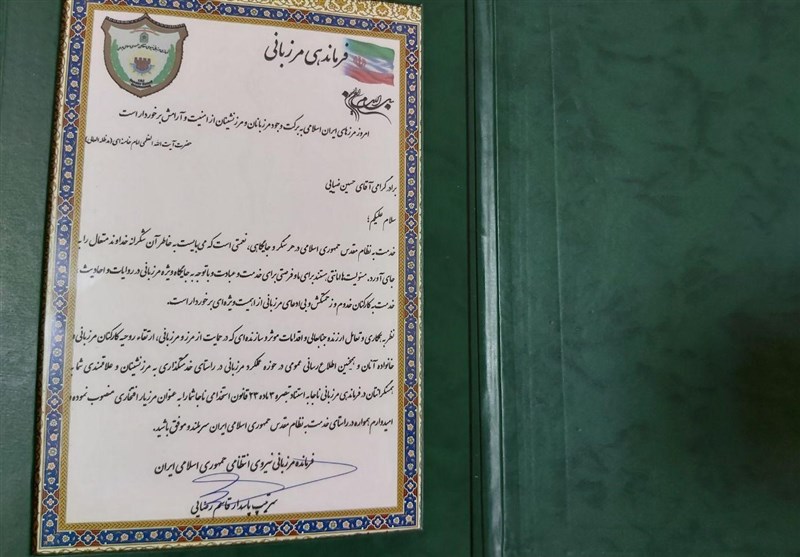 فرماندهی مرزبانی
امروز مرزهای ایران اسلامی به برکت وجود مرزبانان و مرزنشینان از امنیت و آرامش برخوردار است
حضرت آیت الله العظمی امام خامنه‌ای (مدظله العالی)
برادر گرامی آقای حسین ضیایی
سلام علیکم؛
خدمت به نظام مقدس جمهوری اسلامی در هر سنگر و جایگاهی، نعمتی است که می‌بایست به خاطر آن شکرانه خداوند متعال را به
جای آورد. مسئولیت‌ها امانتی هستند برای ما و فرصتی برای خدمت و عبادت و با توجه به جایگاه ویژه مرزبانی در روایات و احادیث
خدمت به کارکنان خدوم و زحمتکش و بی‌ادعای مرزبانی از اهمیت ویژه‌ای برخوردار است.
نظر به همکاری و تعامل ارزنده جنابعالی و اقدامات موثر و سازنده‌ای که در حمایت از مرز و مرزبانی، ارتقاء روحیه کارکنان مرزبانی و
خانواده آنان و همچنین اطلاع رسانی عمومی در حوزه عملکرد مرزبانی در راستای خدمتگذاری به مرزنشینان و علاقمندی شما به
همسنگرانتان در فرماندهی مرزبانی ناجا به استناد تبصره ۳ ماده ۲۳ قانون استخدامی ناجا شما را به عنوان مرزیار افتخاری منصوب نموده و
امیدوارم همواره در راستای خدمت به نظام مقدس جمهوری اسلامی ایران سربلند و موفق باشید.
فرمانده مرزبانی نیروی انتظامی جمهوری اسلامی ایران
سرتیپ پاسدار قاسم رضایی